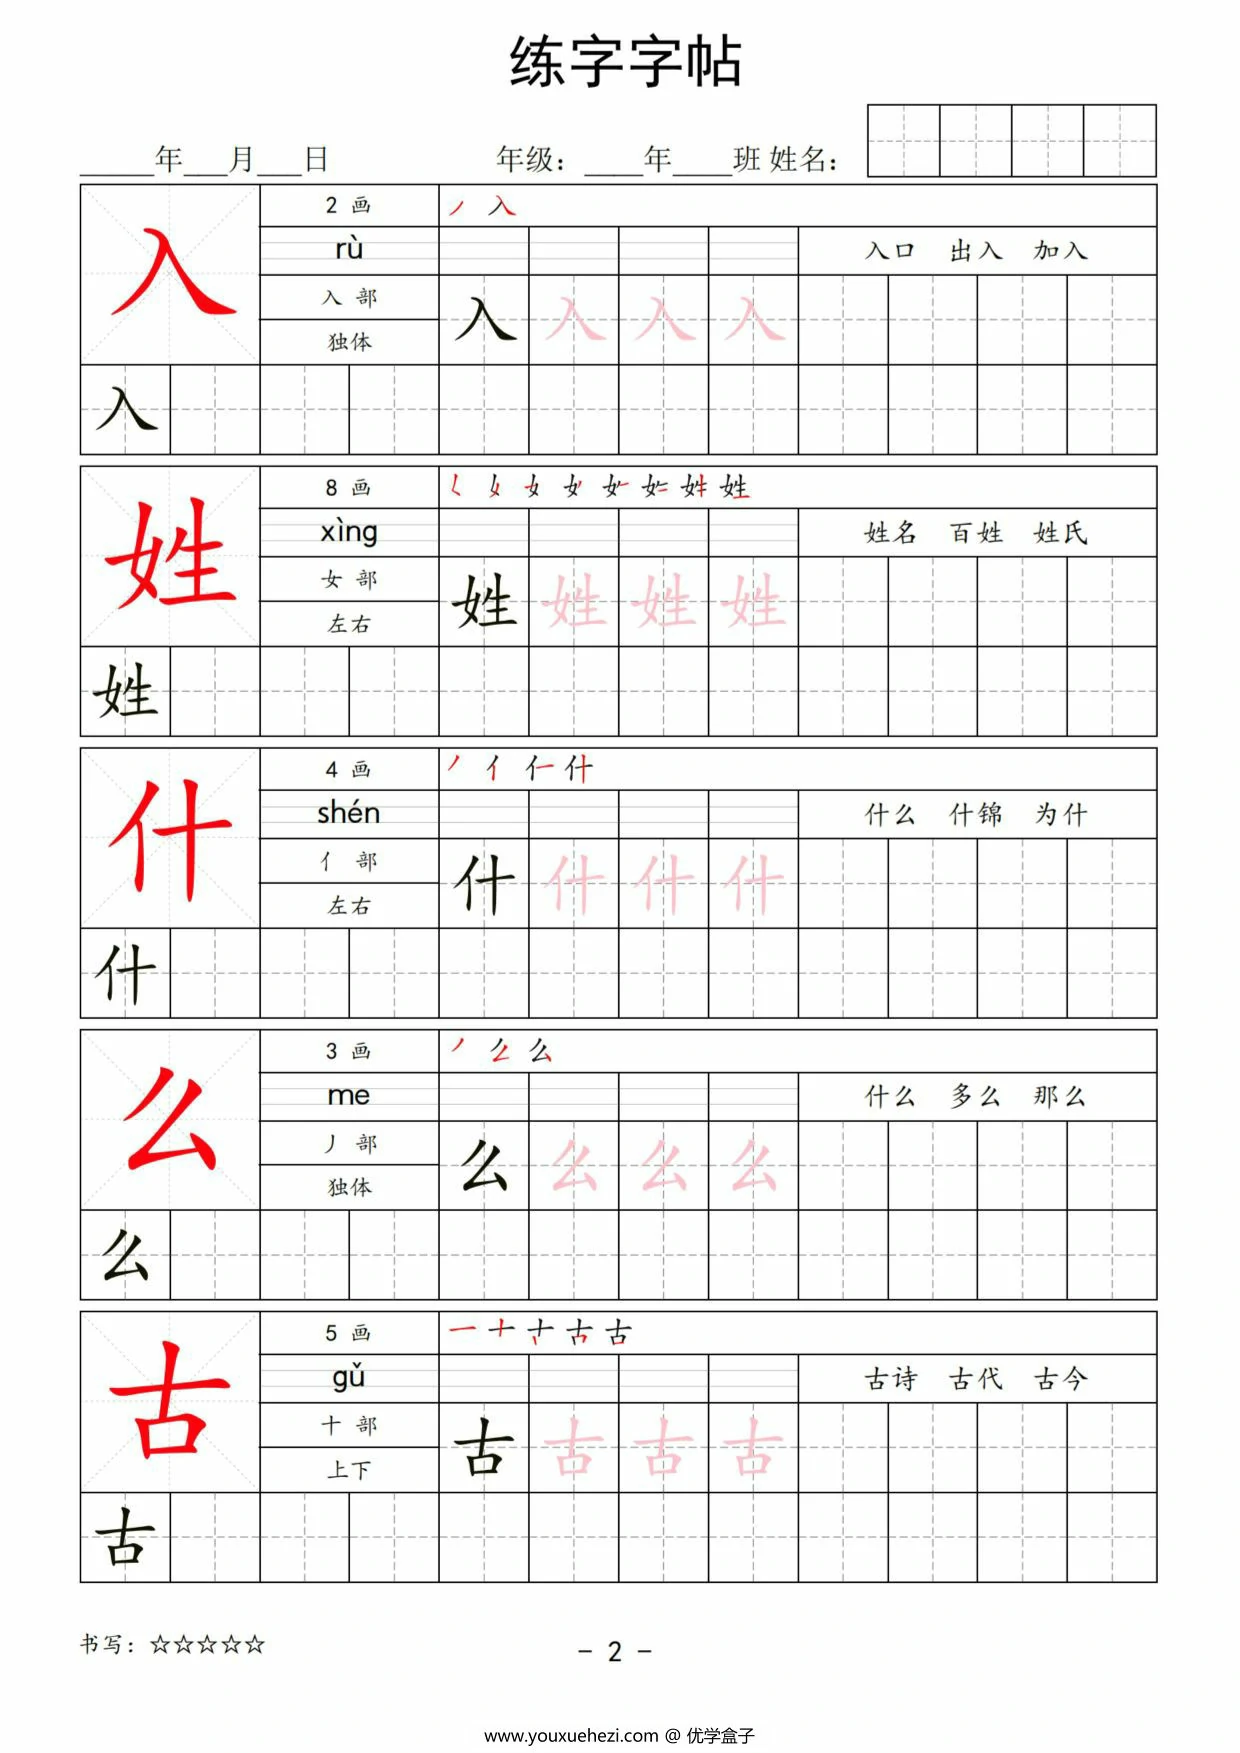 练字字帖
_____年___月___日 年级：____年____班 姓名：
入 2 画 丿 入
rù 入口 出入 加入
入 部 入 入 入 入
独体
入
姓 8 画 姓
xìng 姓名 百姓 姓氏
女 部 姓 姓 姓 姓
左右
姓
什 4 画 丿 亻 仁 什
shén 什么 什锦 为什
亻 部 什 什 什 什
左右
什
么 3 画 丿 么 么
me 什么 多么 那么
丿 部 么 么 么 么
独体
么
古 5 画 一 十 古 古
gǔ 古诗 古代 古今
十 部 古 古 古 古
上下
古
书写：☆☆☆☆☆ - 2 -
www.youxuehezi.com @ 优学盒子